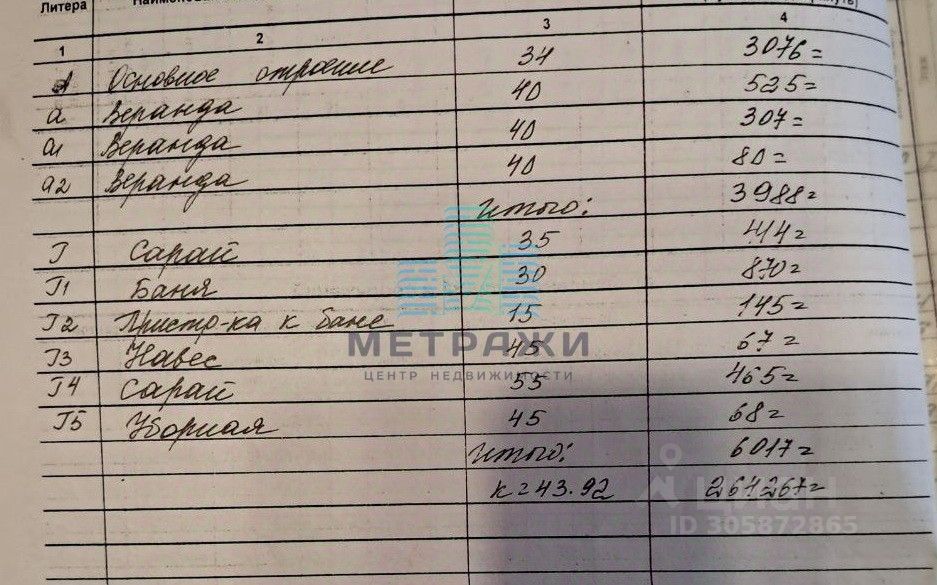 Литера
1 2 3 4
А Основное строение 34 3076=
а Веранда 40 525=
а1 Веранда 40 307=
а2 Веранда 40 80=
Итого: 3988=
Г Сарай 35 414=
Г1 Баня 30 870=
Г2 Пристр-ка к бане 15 145=
МЕТРАЖИ
Г3 Навес 45 67=
ЦЕНТР НЕДВИЖИМОСТИ
Г4 Сарай 55 465=
Г5 Уборная 45 68=
Итого: 6017=
к=43.92 264267=
ЦИАН
ID 305872865